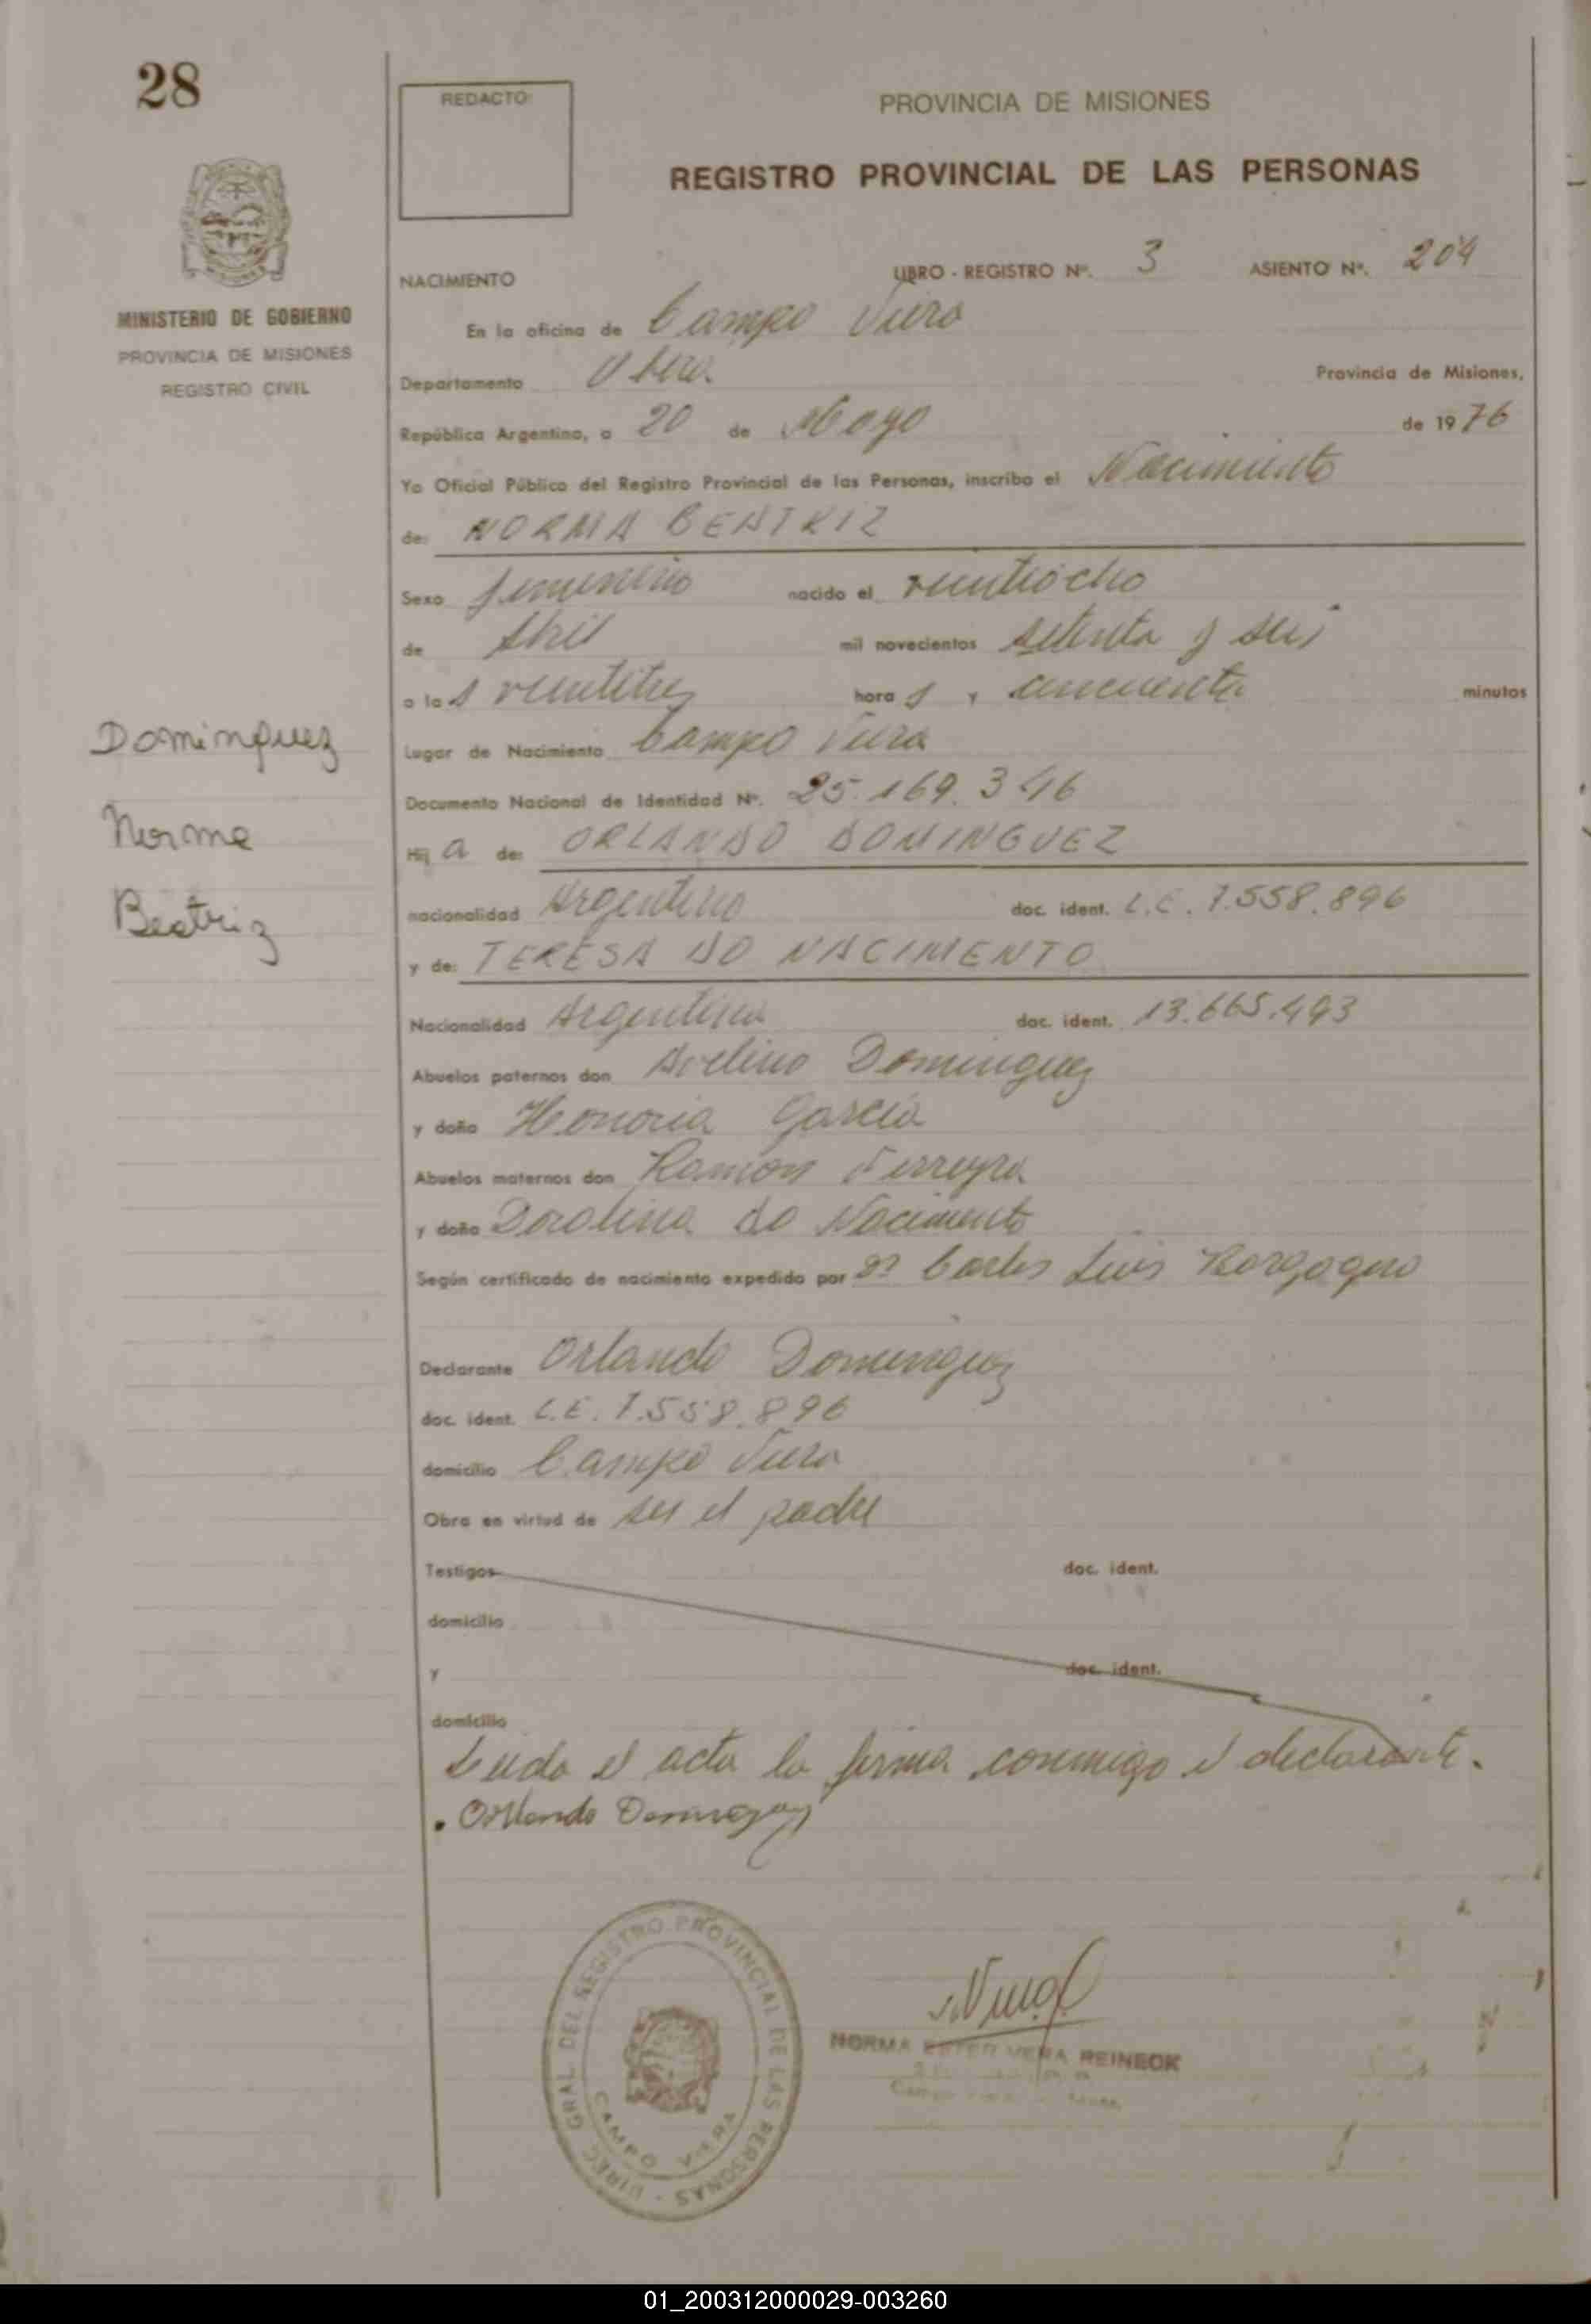 28
REDACTO:
PROVINCIA DE MISIONES
REGISTRO PROVINCIAL DE LAS PERSONAS
MINISTERIO DE GOBIERNO
PROVINCIA DE MISIONES
REGISTRO CIVIL
NACIMIENTO LIBRO - REGISTRO Nº. 3 ASIENTO Nº. 204
En la oficina de Campo Viera
Departamento Obera. Provincia de Misiones,
República Argentina, a 20 de Mayo de 1976
Yo Oficial Público del Registro Provincial de las Personas, inscribo el Nacimiento
de: NORMA BEATRIZ
Sexo femenino nacido el veintiocho
de Abril mil novecientos setenta y seis
a las veintitres horas y cincuenta minutos
Lugar de Nacimiento Campo Viera
Documento Nacional de Identidad Nº. 25.169.346
Hija de: ORLANDO DOMINGUEZ
nacionalidad Argentino doc. ident. L.E. 7.558.896
y de: TERESA DO NACIMENTO
Nacionalidad Argentina doc. ident. 13.665.493
Abuelos paternos don Avelino Dominguez
y doña Honoria Garcia
Abuelos maternos don Ramón Ferreyra
y doña Dorolina do Nacimento
Según certificado de nacimiento expedido por Dr Carlos Luis
Declarante Orlando Dominguez
doc. ident. L.E. 7.558.896
domicilio Campo Viera
Obra en virtud de ser el padre
Testigos doc. ident.
domicilio
y doc. ident.
domicilio
Leida el acta la firma conmigo el declarante.
Orlando Dominguez
Dominguez
Norma
Beatriz
DIREC. GRAL. DEL REGISTRO PROVINCIAL DE LAS PERSONAS -
CAMPO VIERA
NORMA ESTER VERA REINECK
01_200312000029-003260